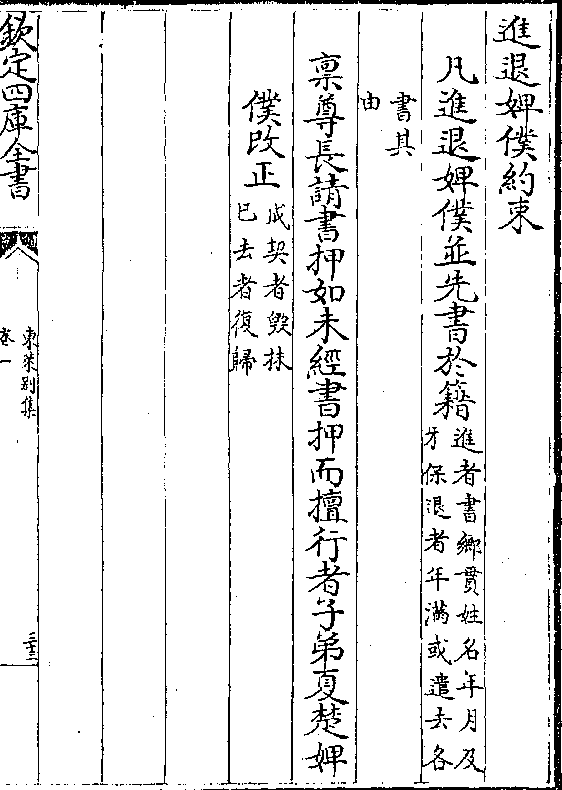 進退婢僕約束
凡進退婢僕並先書於籍進者書鄉貫姓名年月及
牙保退者年滿或遣去各
書其
由
稟尊長請書押如未經書押而擅行者子弟夏楚婢
僕改正成契者毀抹
已去者復歸
欽定四庫全書
東萊别集
卷一
三十三